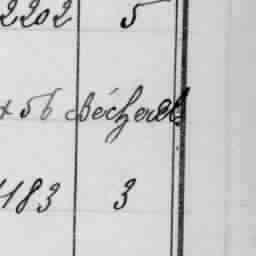 2202 5
x 56 Bécherel
1183 3